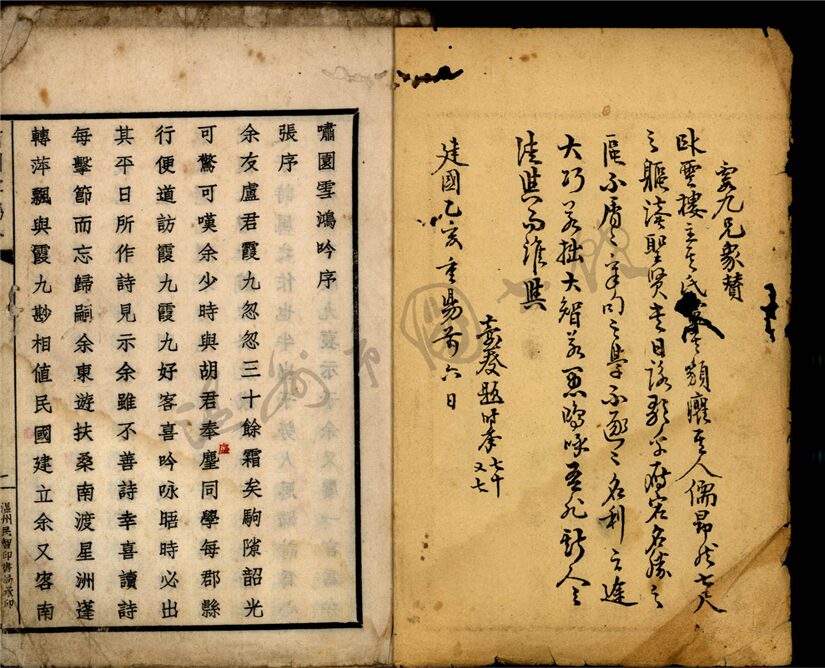 霞九兄象贊
臥雲樓主其氏其類癯其人儒昂然七尺
之軀讀聖賢書日詠歌乎名勝之
區不屑之章句之學不逐之名利之途
大巧若拙大智若愚嗚呼吾非斯人之
徒與而誰與
題時年七十
又七
建國乙亥重陽前六日
嘯園雪鴻吟序
張序
余友盧君霞九忽忽三十餘霜矣駒隙韶光
可驚可嘆余少時與胡君奉塵同學每郡縣
行便道訪霞九霞九好客喜吟咏晤時必出
其平日所作詩見示余雖不善詩幸喜讀詩
每擊節而忘歸嗣余東遊扶桑南渡星洲蓬
轉萍飄與霞九尠相值民國建立余又客南
一
溫州民智印書局承印